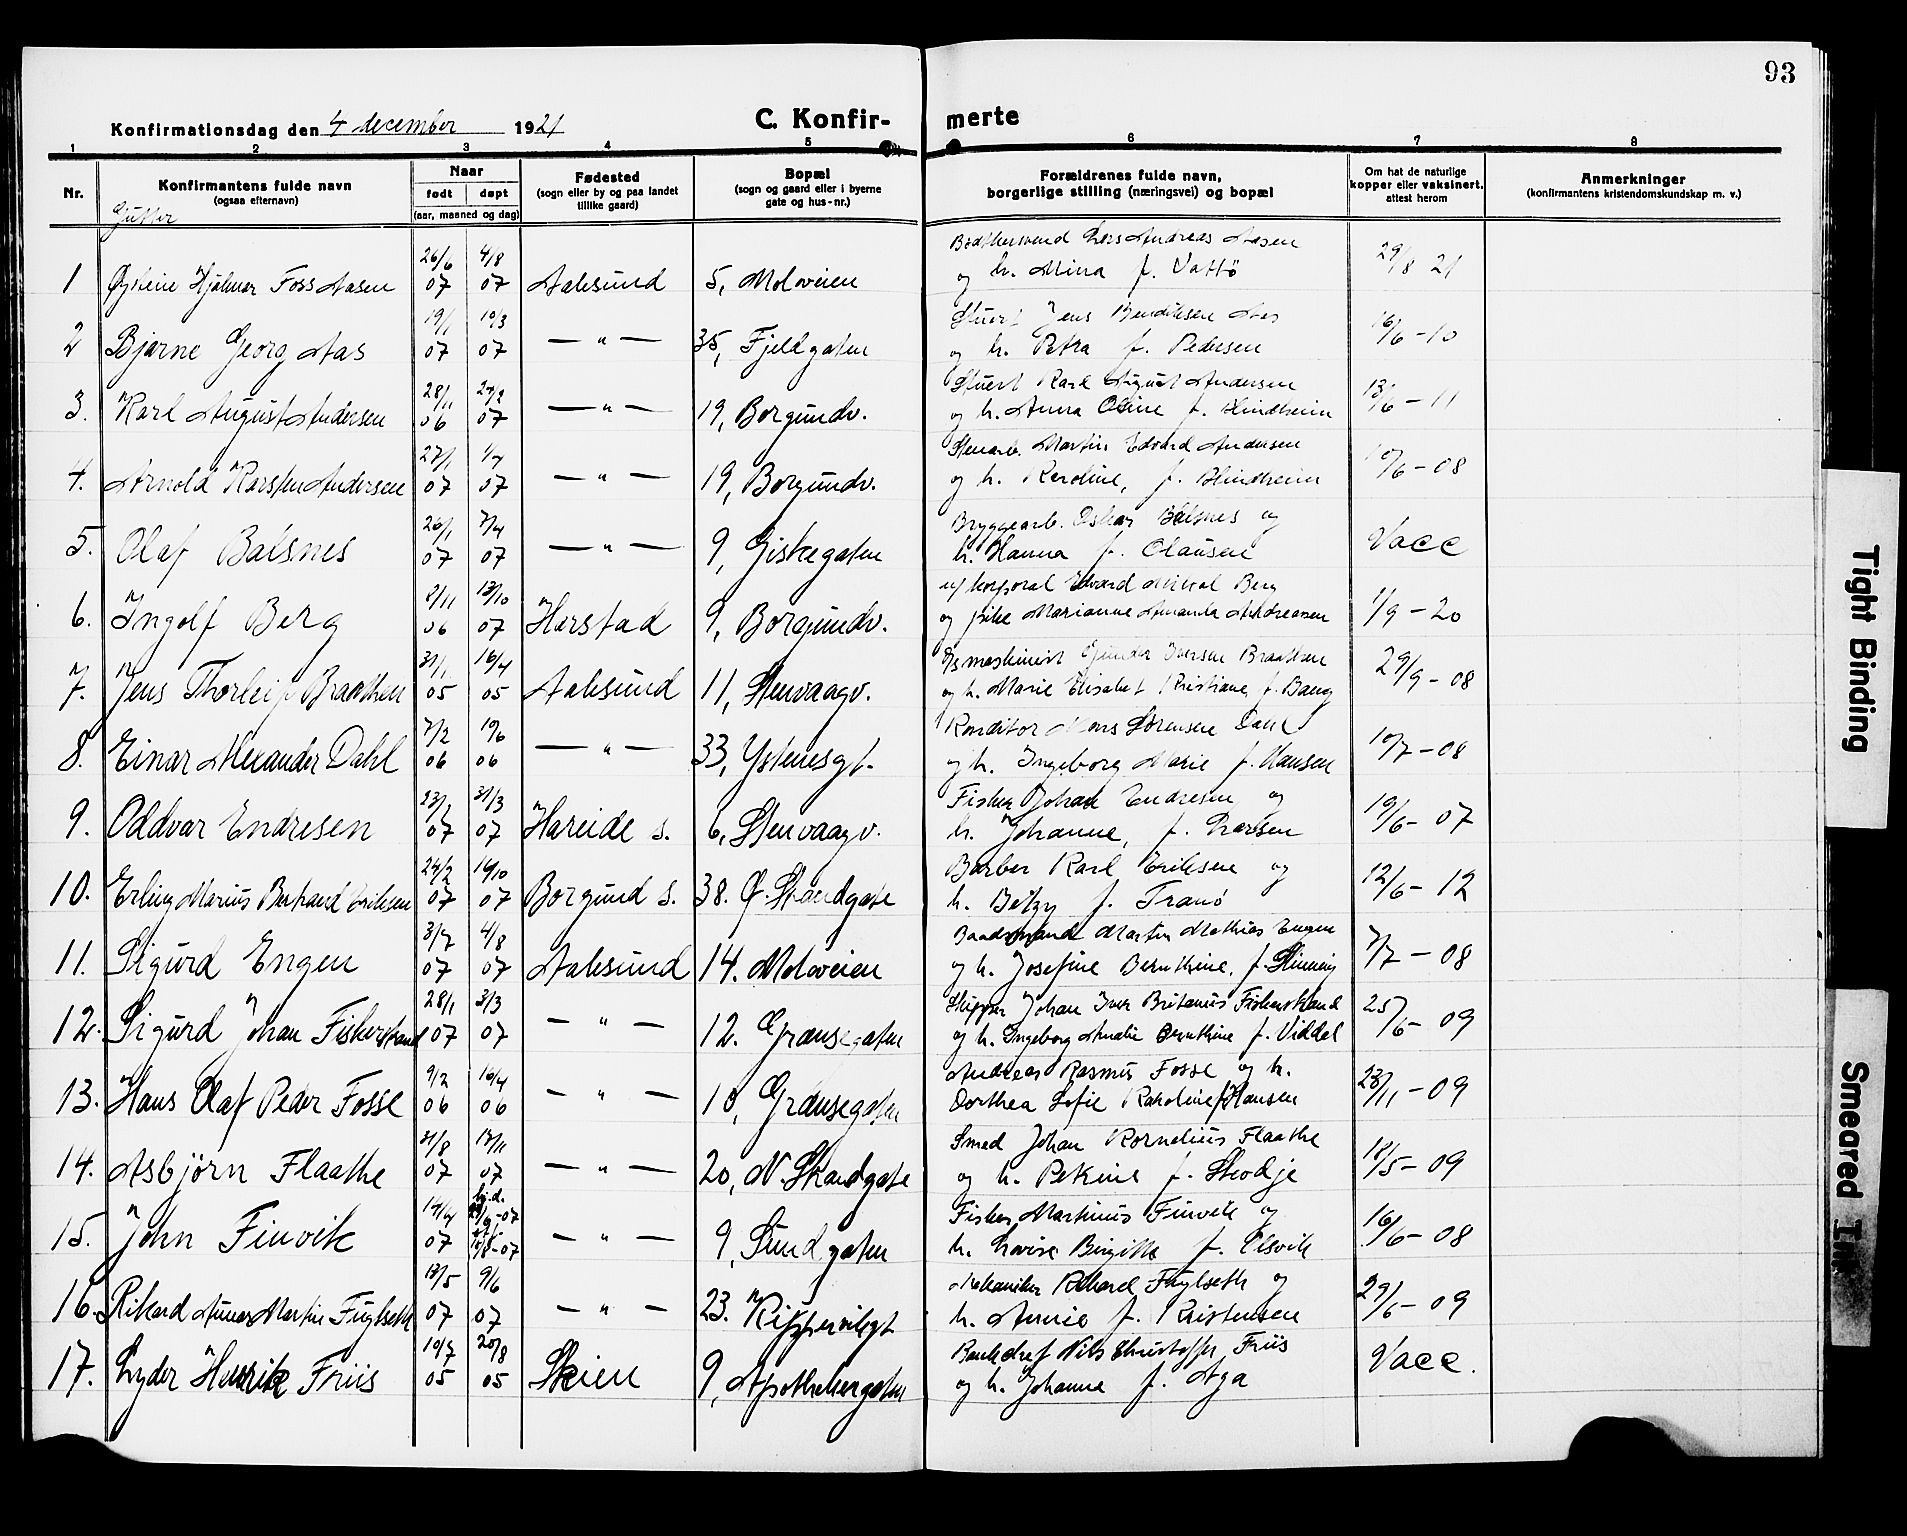 93
Konfirmationsdag den 4 december 1921
C. Konfir- merte
1 2 3 4 5 6 7 8
Nr.
Konfirmantens fulde navn
(ogsaa efternavn)
Gutter
Naar
født døpt
(aar, maaned og dag)
Fødested
(sogn eller by og paa landet
tillike gaard)
Bopæl
(sogn og gaard eller i byerne
gate og hus-nr.)
Forældrenes fulde navn,
borgerlige stilling (næringsvei) og bopæl
Om hat de naturlige
kopper eller vaksinert.
attest herom
Anmerkninger
(konfirmantens kristendomskundskap m. v.)
26/6 4/8 Lars Andreas Aasen
1 Øistein Hjalmar Foss Aasen 07 07 Aalesund 5, Moloveien og h. Mina f. Vattø 29/8 21
19/1 10/3 Stuert Jens Bendiksen Aas
2 Bjarne Georg Aas 07 07 — " — 35, Fjeldgaten og h. Petra f. Pedersen 16/6 - 10
28/11 Stuert Karl August Andersen
3. Karl August Andersen 06 07 — " — 19, Borgundv. og h. Anna Oline f. Blindheim 13/6 - 11
27/1 1/4 Stenarb. Martin Edvard Andersen
4. Arnold Karsten Andersen 07 07 — " — 19, Borgundv. og h. Karoline, f. Blindheim 10/6 - 08
26/1 7/4 Bryggearb. Oskar Balsnes og
5. Olaf Balsnes 07 07 — " — 9, Giskegaten h. Hanna f. Olausen Vacc
2/11 13/10 u/ korporal Edvard Berg
6. Ingolf Berg 06 07 Harstad 9, Borgundv. og pike Marianne Amanda Andreassen 1/9 - 20
31/1 16/4 maskinist Gunder Iversen Braathen
7. Jens Thorleif Braathen 05 05 Aalesund 11, Stenvaagv. og h. Marie Elisabet Kristiane f. Bang 29/9 - 08
7/2 19/6 Konditor Mons Sørensen Dahl
8. Einar Alexander Dahl 06 06 — " — 33, Ystenesgt. og h. Ingeborg Marie f. Hansen 10/7 - 08
23/1 31/3 Fisker Johan Endresen og
9. Oddvar Endresen 07 07 Hareide s. 6, Stenvaagv. h. Johanne, f. Larsen 19/6 - 07
24/2 16/10 Barber Karl Eriksen og
10. Erling Marius Bertrand Eriksen 07 07 Borgund s. 38. Ø. Strandgate h. Betzy f. Tranø 12/6 - 12
3/7 4/8 Baadsmand Martin Mathias Engen
11. Sigurd Engen 07 07 Aalesund 14. Moloveien og h. Josefine Bernthine, f. Slinning 7/7 - 08
28/1 3/3 Skipper Johan Iver Britanus Fiskerstrand
12. Sigurd Johan Fiskerstrand 07 07 — " — 12. Grænsegaten og h. Ingeborg Amalie Bernthine f. Viddal 25/6 - 09
9/2 16/4 Andreas Rasmus Fosse og h.
13. Hans Olaf Peder Fosse 06 06 — " — 10, Grænsegaten Dorthea Sofie Karoline f. Hansen 23/11 - 09
31/8 17/11 Smed Johan Kornelius Flaathe
14. Asbjörn Flaathe 07 07 — " — 20, N. Strandgate og h. Petrine f. Skodje 18/5 - 09
14/4 hj.d. Fisker Martinus Finvik og
15. John Finvik 07 — " — 9, Sundgaten h. Lovise Birgitte f. Elsvik 16/6 - 08
13/5 9/6 Mekaniker Rikard Fuglseth og
16. Rikard Martin Fuglseth 07 07 — " — 23. Kippervikgt h. Annie f. Kristensen 29/6 - 09
10/7 20/8 Bankchef Nils Christoffer Friis
17. Lyder Henrik Friis 05 05 Skien 9, Apothekergaten og h. Johanne f. Aga Vacc.
Tight Binding
Smeared Ink